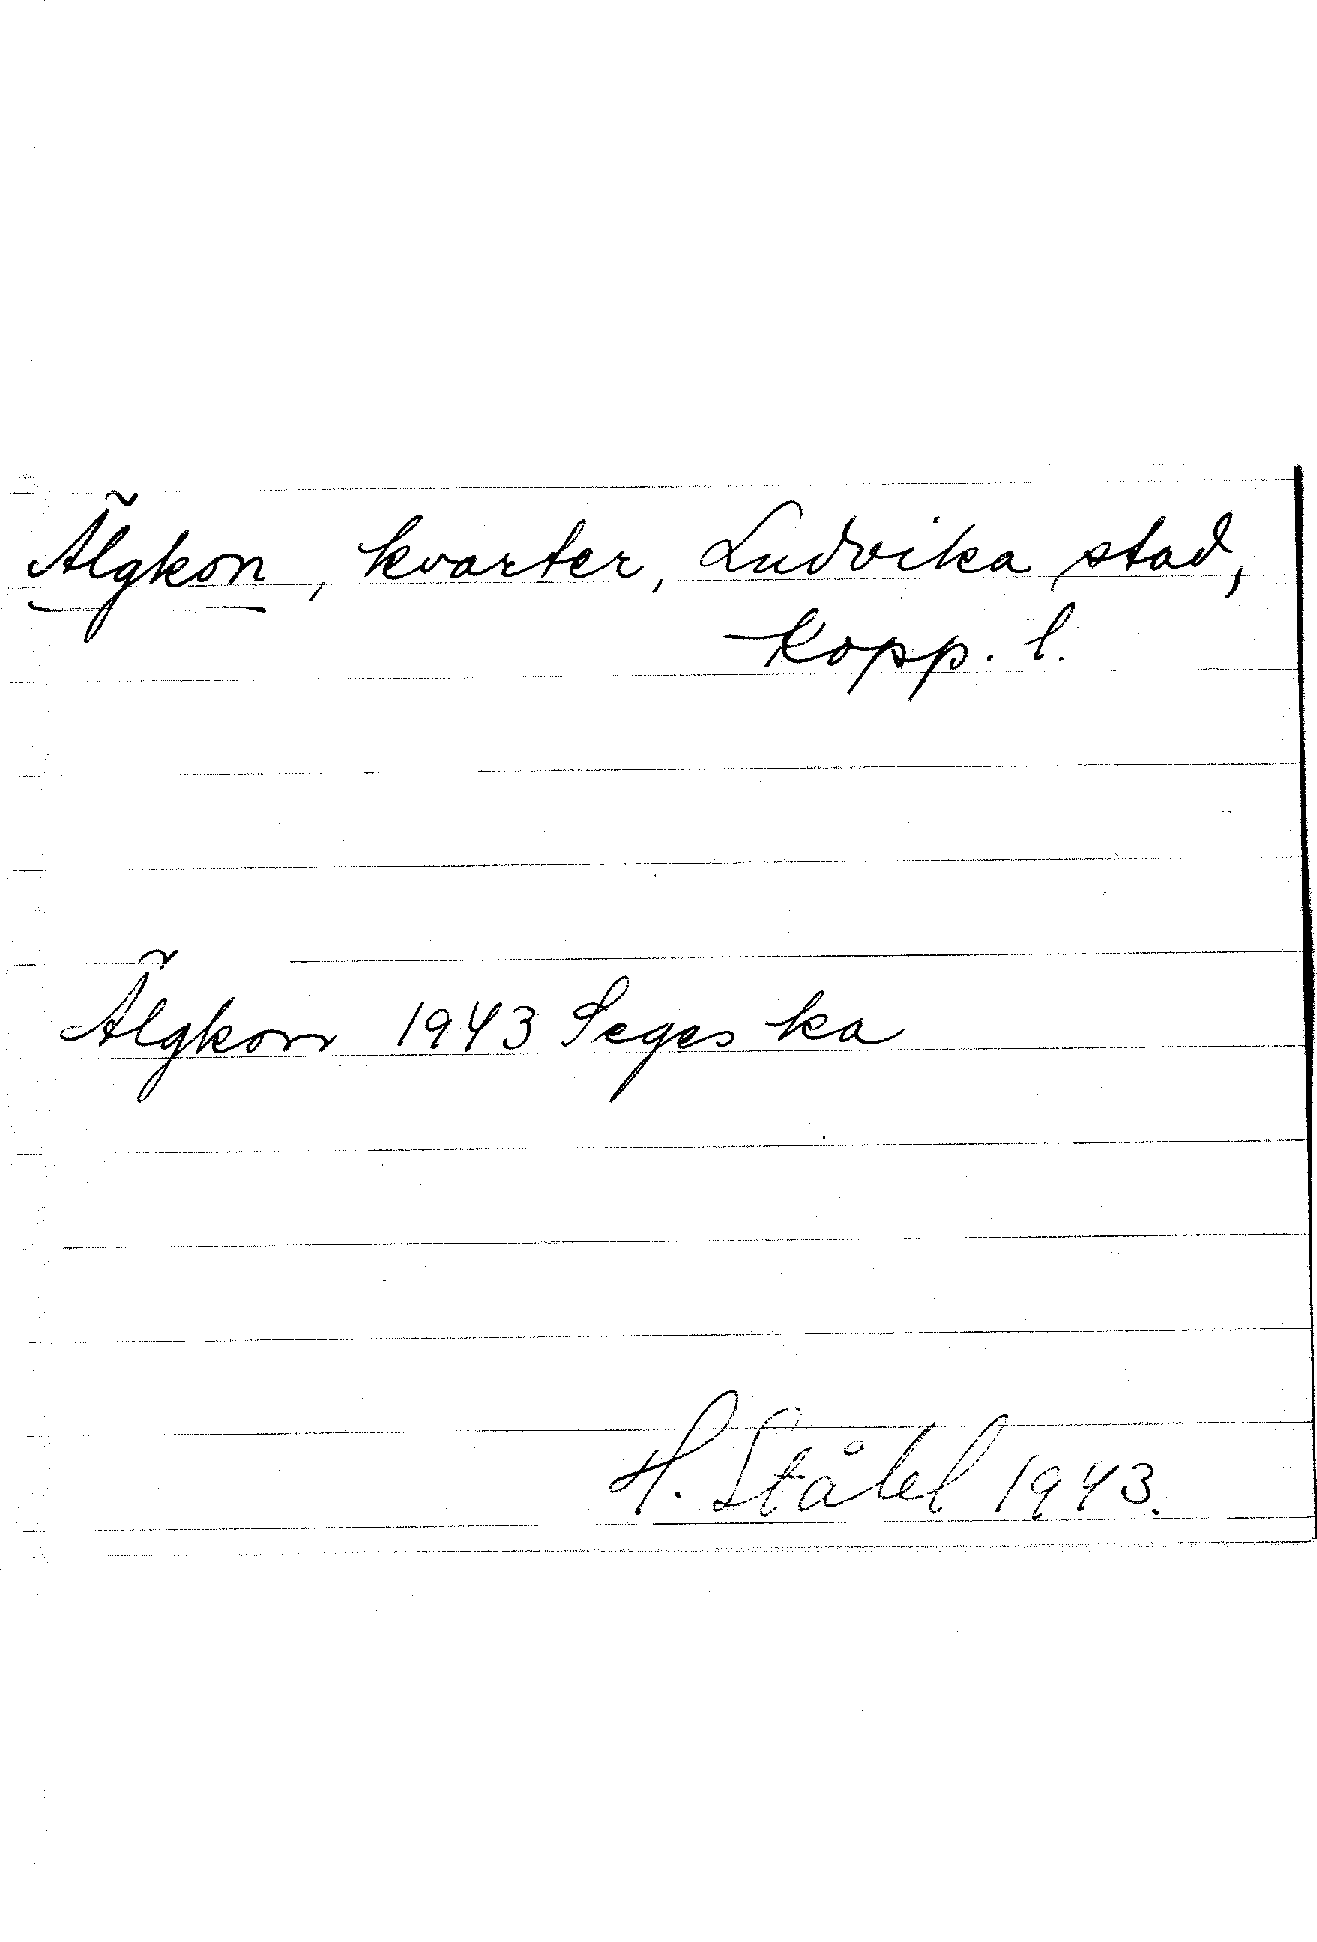 Älgkon, kvarter, Ludvika stad,
Kopp. l.
Älgkon 1943 Seges ka
H. Ståhl 1943.